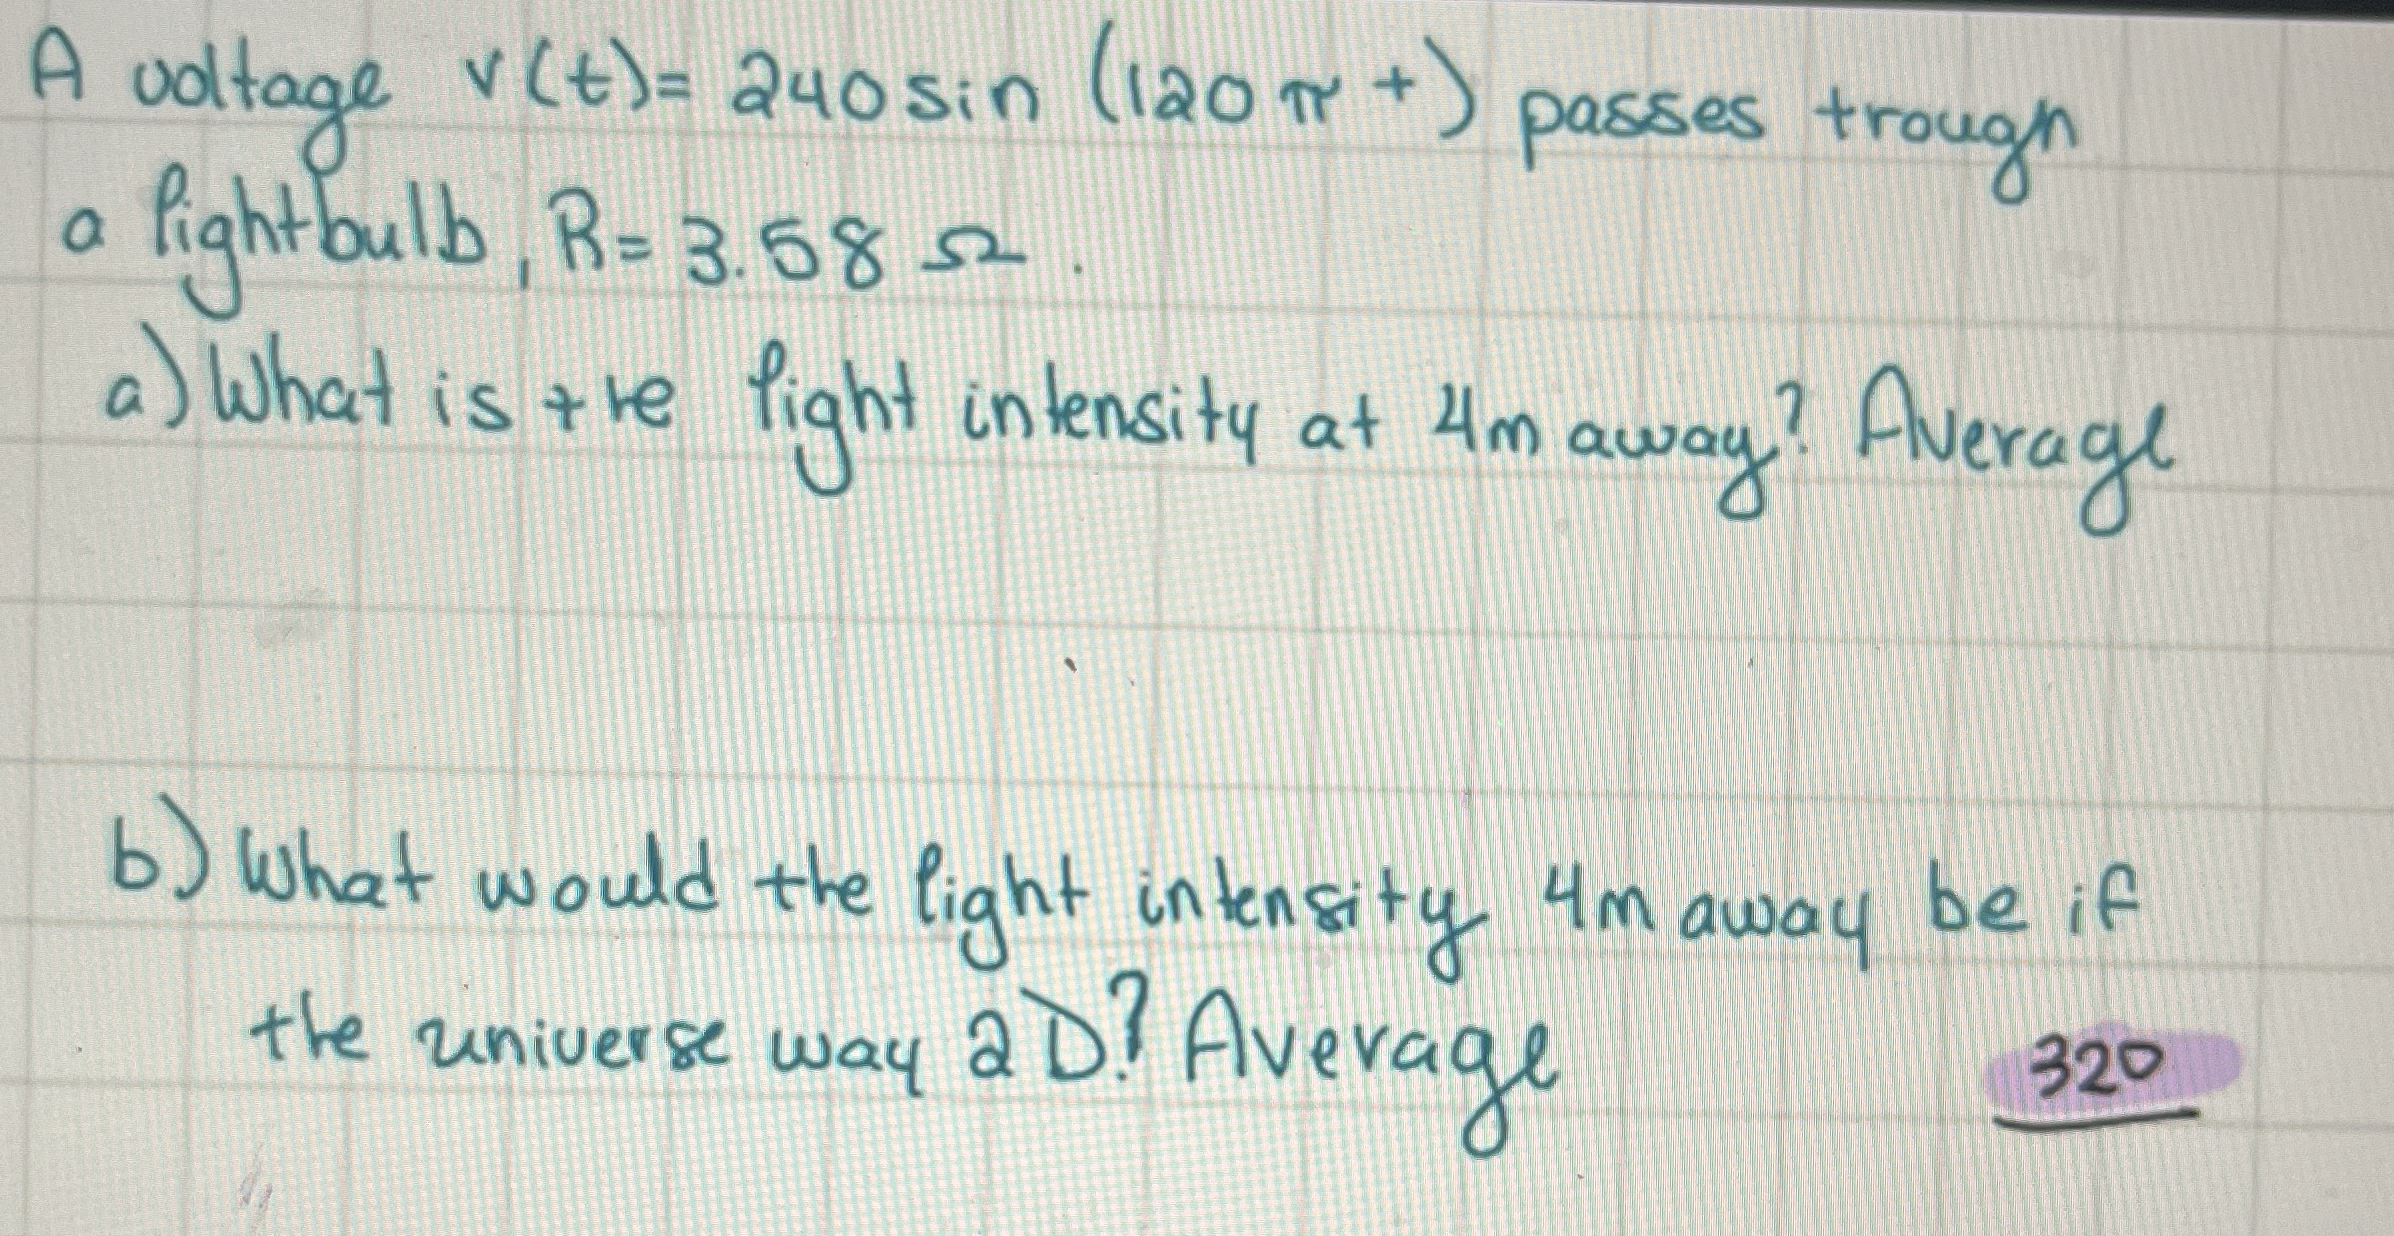 A voltage v(t)= 240 sin (120 π t) passes trough
a lightbulb, R= 3.58 Ω.
a) What is the light intensity at 4m away? Average
b) What would the light intensity 4m away be if
the universe way 2D? Average
320